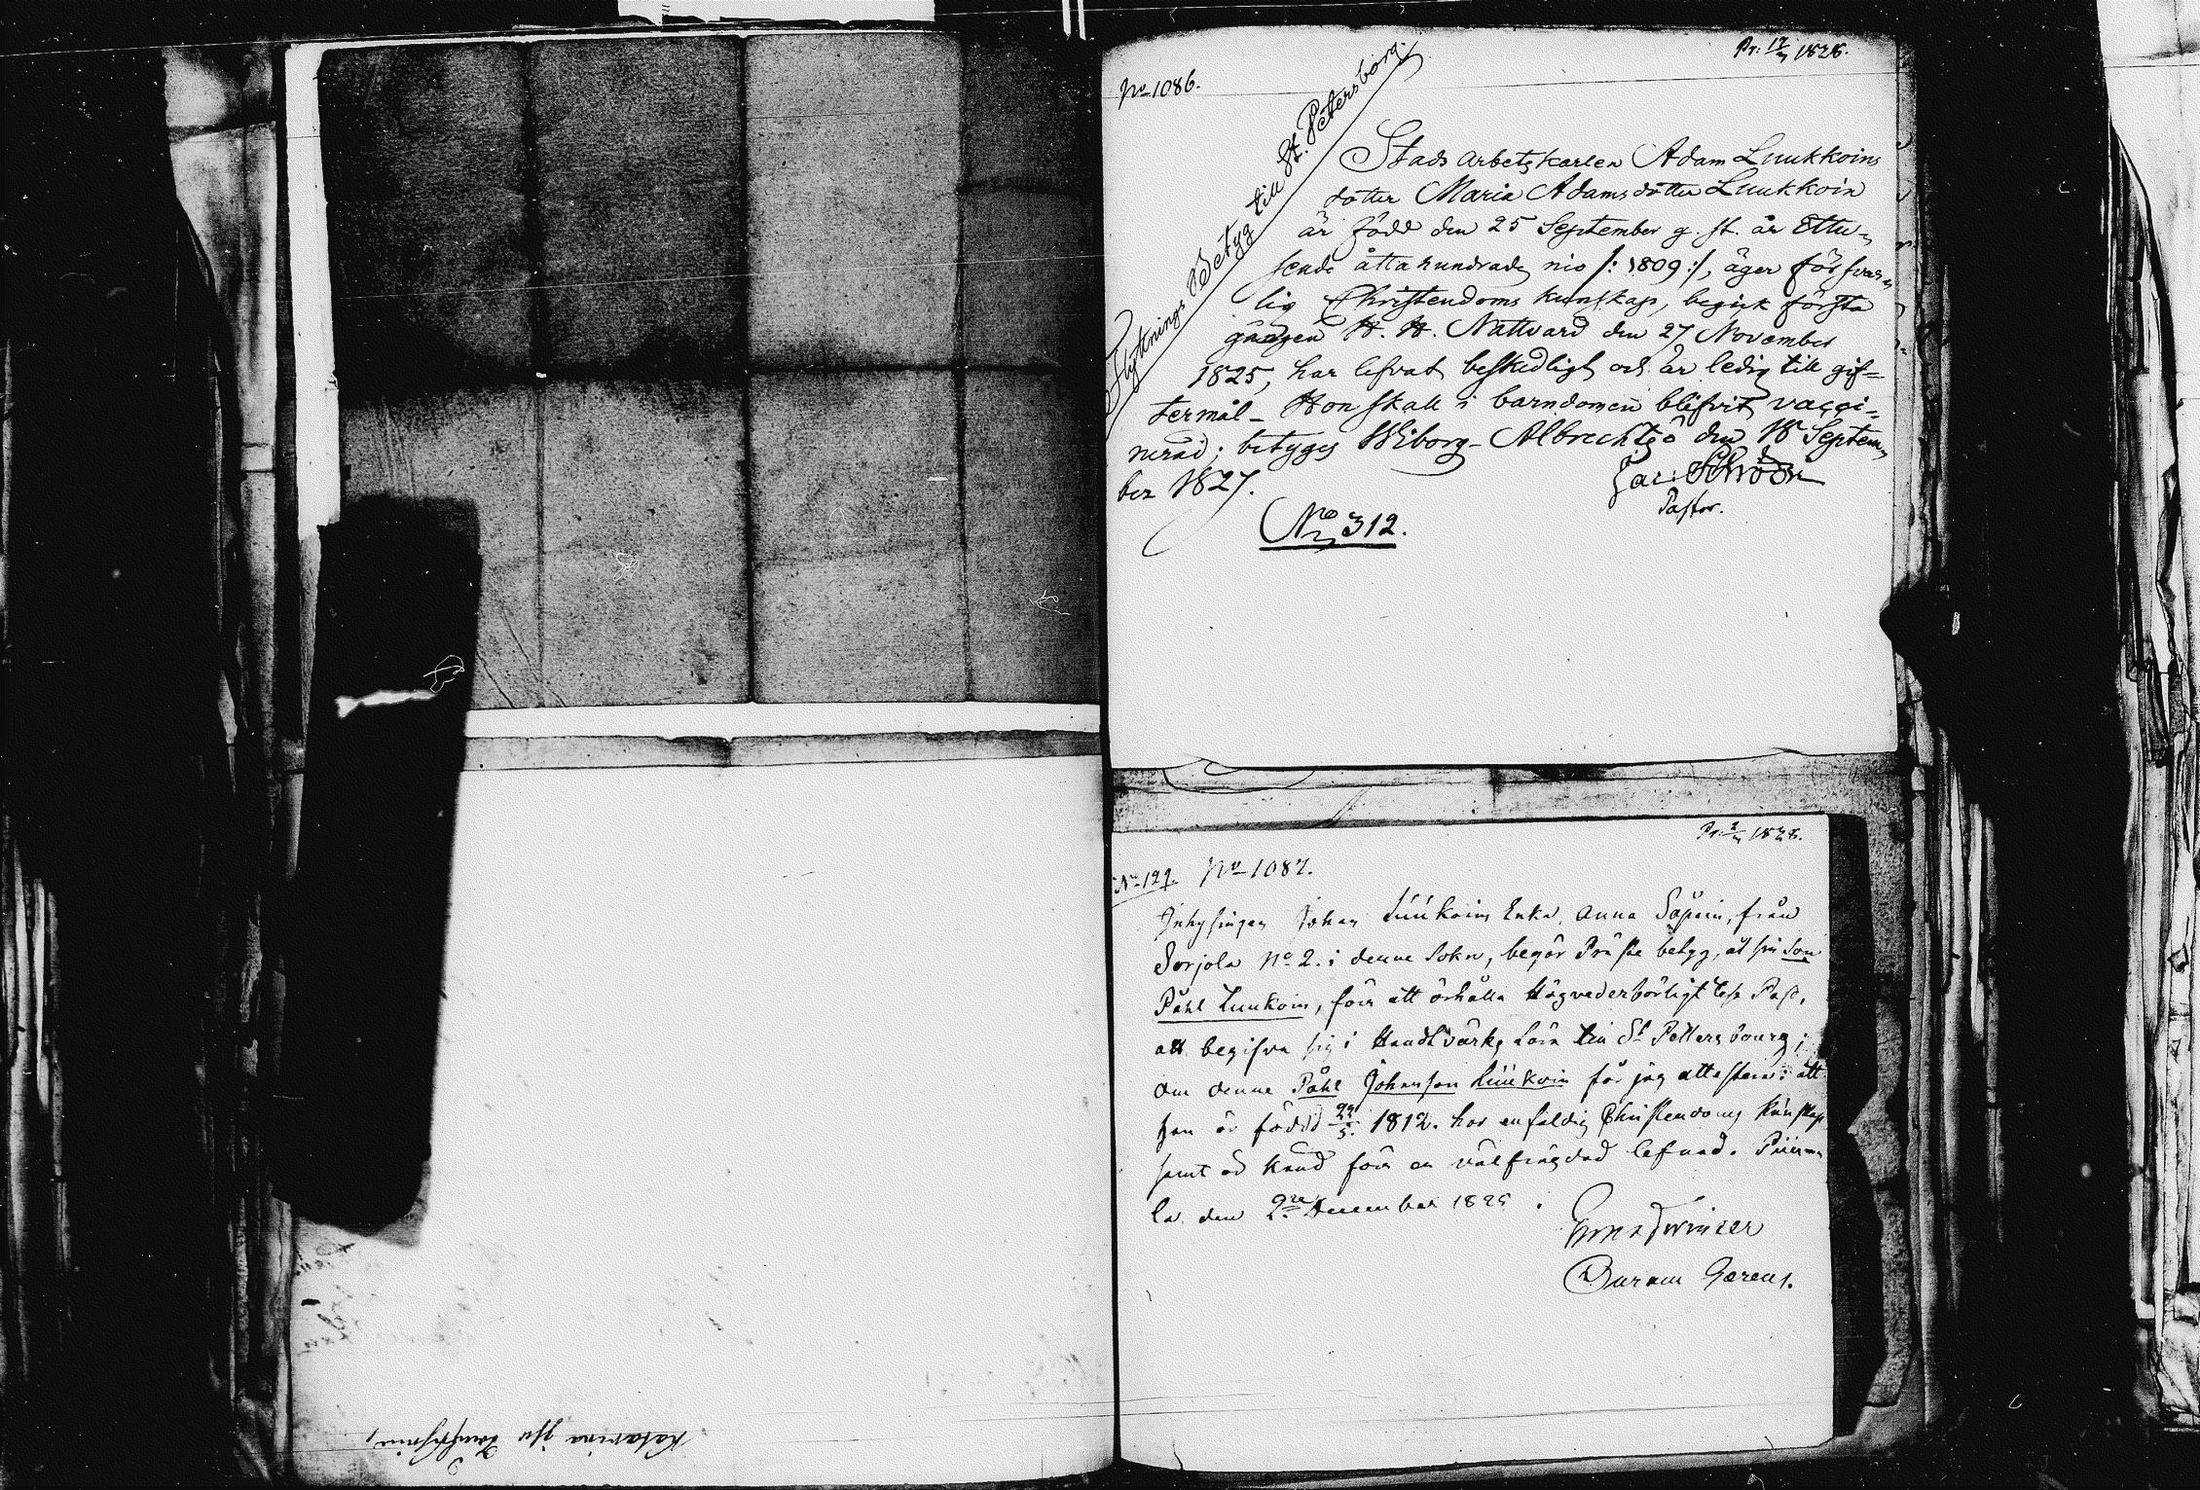 No 1086.
Pr: 17/3 1828.
Flyttnings Betyg till St. Petersborg
Stads arbetskarlen Adam Luukkoins
dotter Maria Adamsdotter Luukkoin
är född den 25 September g. st. år Ettu-
sende åttahundrade nio /: 1809 :/, äger försvar-
lig Christendoms kunskap, begick första
gången H. H. Nattvard den 27 November
1825, har lefvat beskedligt och är ledig till gif=
termål - Hon skall i barndomen blifvit vacci=
nerad; betygas Wiborg - den 18 Septem-
ber 1827.
Pastor.
No 312.
1828.
No 1087.
Johan Luukoins Enka, Anna från
Sorjola No 2. i denne Sokn, begär Präste betyg, åt sin son
Påhl Luukoin, för att erhålla
att begifva sig i Handtvärks Lära till St Pettersbourg;
om denne Påhl Johansson Luukoin får jag attestera: att
han är född 1812. har enfaldig Christendoms kunskap
samt är känd för en välfrägdad lefnad.
la den 2re December 182
Katarina